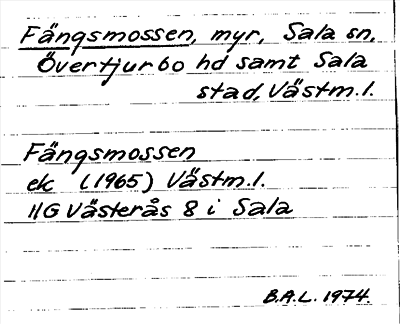 Fängsmossen, myr, Sala sn,
Övertjurbo hd samt Sala
stad, Västm.l.
Fängsmossen
ek (1965) Västm.l.
11G Västerås 8 i Sala
B.A.L. 1974.